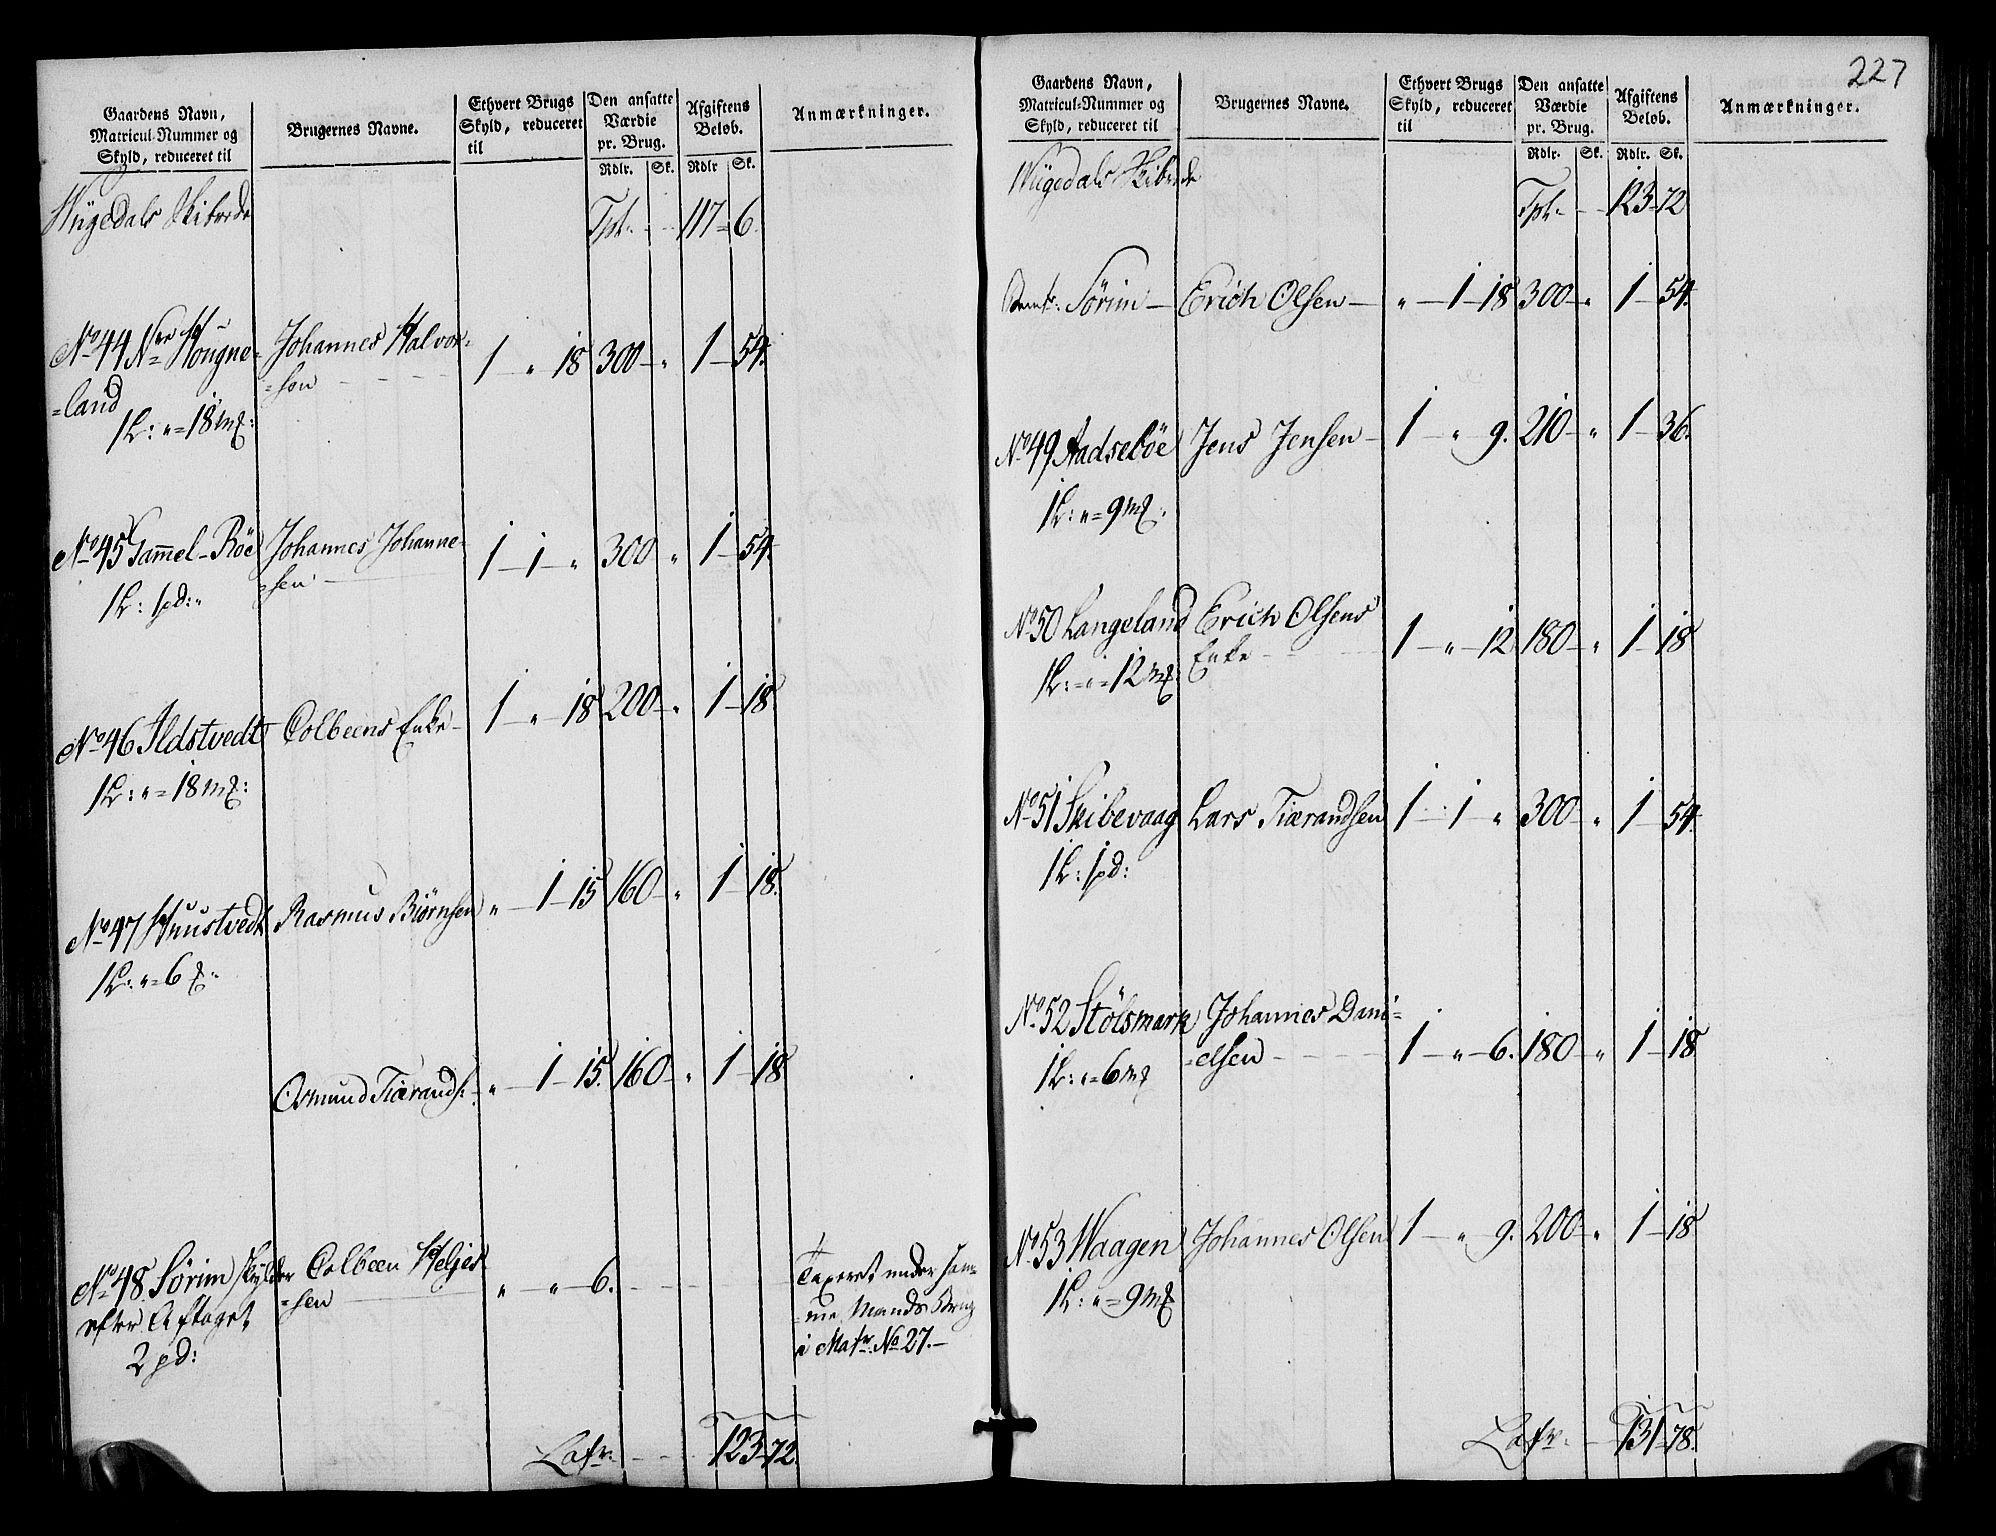 Gaardens Navn,
Matricul-Nummer og
Skyld, reduceret til
Brugernes Navne.
Ethvert Brugs
Skyld, reduceret
til
Den ansatte
Værdie
pr. Brug.
Rdlr. Sk.
Afgiftens
Beløb.
Rdlr Sk.
Anmærkninger.
Wigedals Skibrede Tpt. 117 = 6.
No 44 Nre Hougne= Johannes Halvor= 1 — „ 18 300 — „ 1 — 54.
=land =sen
1 L: „ = 18 mȝ:
No 45 Gam̄el-Röe Johannes Johanne= 1 — 1 — „ 300 „ 1 — 54.
=sen
1 L: 1 pd: „
No 46 Ildstvedt Colbeens Enke — 1 — „ — 18 200 — „ 1 — 18
1 L: „ = 18 mȝ:
No 47 Huustvedt Rasmus Biørnsen „ — 1 — 15 160 — „ 1 — 18.
1 L: „ = 6 ȝ.
Osmund Tiærands: „ — 1 — 15. 160 — „ 1 — 18
No 48. Sörim skylder Colbeen Heljes „ — „ — 6.
efter Aftaget =sen
2 pd:
Taxeret under sam=
=me Mands Brug
i Matr: No 27. —
Lafr: 123 — 72.
227
Gaardens Navn,
Matricul-Nummer og
Skyld, reduceret til
Brugernes Navne.
Ethvert Brugs
Skyld, reduceret
til
Den ansatte
Værdie
pr. Brug.
Rdlr. Sk.
Afgiftens
Beløb.
Rdlr. Sk.
Anmærkninger.
Wigedals Skibrede Tpt. 123 = 72
Sörim — Erich Olsen — „ — 1 — 18 300 — „ 1 — 54.
No 49 Aadseböe Jens Jensen — 1 — „ 9. 210 — „ 1 — 36.
1 L: „ = 9 mȝ.
No 50 Langeland Erich Olsens 1 — „ — 12 180 — „ 1 — 18
Enke
1 L: = „ = 12 mȝ:
No 51 Skibevaag Lars Tiærandsen 1 — 1 „ 300 — „ 1 — 54.
1 L: 1 pd:
No 52 Stölsmark Johannes Dani= 1 — „ — 6. 180 — „ 1 — 18
=elsen
1 L: „ = 6 mȝ
No 53 Waagen Johannes Olsen 1 — „ 9. 200 — „ 1 — 18
1 L: „ = 9 mȝ
Lafr. 131 = 78.